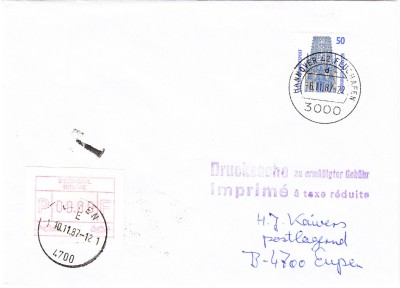 50
HANNOVER 42 FLUGHAFEN
d
3000
Drucksache zu ermäßigter Gebühr
Imprimé à taxe réduite
E
10.11.87-12
4700
H.J. Kaivers
postlagernd
B-4700 Eupen